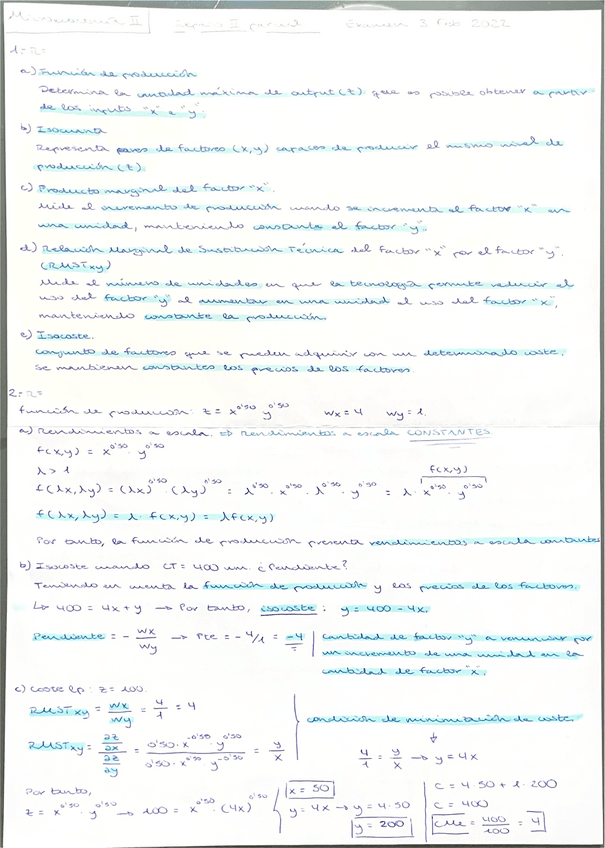 Microeconomía II Repaso II parcial Examen 3 Feb 2022
1=R=
a) Función de producción
Determina la cantidad máxima de output (z) que es posible obtener a partir
de los inputs "x" e "y".
b) Isocuanta
Representa pares de factores (x,y) capaces de producir el mismo nivel de
producción (z).
c) Producto marginal del factor "x".
Mide el incremento de producción cuando se incrementa el factor "x" en
una unidad, manteniendo constante el factor "y".
d) Relación Marginal de Sustitución Técnica del factor "x" por el factor "y".
(RMSTxy)
Mide el número de unidades en que la tecnología permite reducir el
uso del factor "y" al aumentar en una unidad el uso del factor "x",
manteniendo constante la producción.
e) Isocoste.
Conjunto de factores que se pueden adquirir con un determinado coste.
Se mantienen constantes los precios de los factores.
2=R=
Función de producción: z = x^0'50 y^0'50 Wx = 4 Wy = 1.
a) Rendimientos a escala. ⇒ Rendimientos a escala CONSTANTES
f(x,y) = x^0'50 · y^0'50
λ > 1 f(x,y)
f(λx, λy) = (λx)^0'50 · (λy)^0'50 = λ^0'50 · x^0'50 · λ^0'50 · y^0'50 = λ · x^0'50 · y^0'50
f(λx, λy) = λ · f(x,y) = λf(x,y)
Por tanto, la función de producción presenta rendimientos a escala constantes
b) Isocoste cuando CT = 400 um. ¿Pendiente?
Teniendo en cuenta la función de producción y los precios de los factores.
↳ 400 = 4x + y → Por tanto, isocoste: y = 400 - 4x.
Pendiente = - Wx/Wy → Pte = -4/1 = -4 | Cantidad de factor "y" a renunciar por
un incremento de una unidad en la
cantidad de factor "x".
c) Coste lp: z = 100.
RMSTxy = Wx/Wy = 4/1 = 4 condición de minimización de coste.
↓
RMSTxy = (∂z/∂x)/(∂z/∂y) = (0'50 · x^-0'50 · y^0'50)/(0'50 · x^0'50 y^-0'50) = y/x 4/1 = y/x → y = 4x
Por tanto, x = 50 C = 4·50 + 1·200
z = x^0'50 · y^0'50 → 100 = x^0'50 · (4x)^0'50 y = 4x → y = 4·50 C = 400
y = 200 CMe = 400/100 = 4